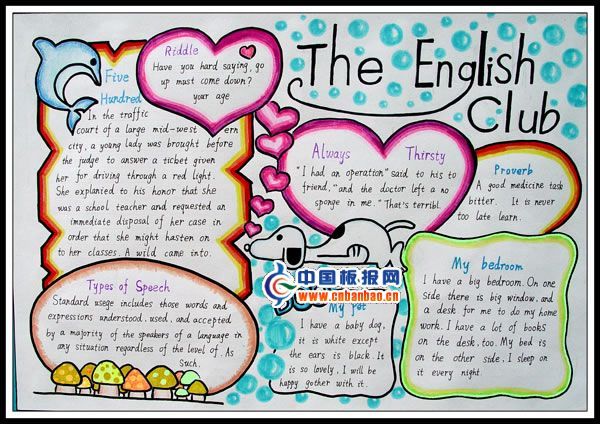 The English
Club
Riddle
Have you hard saying, go
up must come down?
your age
Five
Hundred
In the traffic
court of a large mid-west ern
city, a young lady was brought before
the judge to answer a ticket given
her for driving through a red light.
She explanied to his honor that she
was a school teacher and requested an
immediate disposal of her case in
order that she might hasten on
to her classes. A wild came into.
Always Thirsty
"I had an operation" said to his to
friend, "and the doctor left a no
sponge in me." "That's terribl.
Proverb
A good medicine task
bitter. It is never
too late learn.
Types of Speech
Standard usege includes those words and
expressions understood, used, and accepted
by a majority of the speakers of a language in
any situation regardless of the level of. As
Such.
中国板报网
www.cnbanbao.cn
My Pet
I have a baby dog,
it is white except
the ears is black. It
is so lovely. I will be
happy gother with it.
My bedroom
I have a big bedroom. On one
side there is big window, and
a desk for me to do my home
work. I have a lot of books
on the desk, too. My bed is
on the other side. I sleep on
it every night.